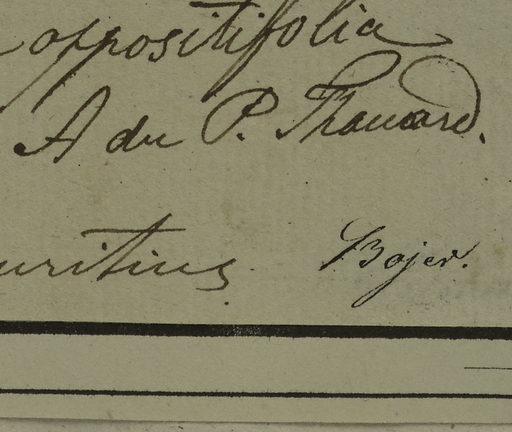 oppositifolia
A du P. Thouard.
uritius. Bojer.